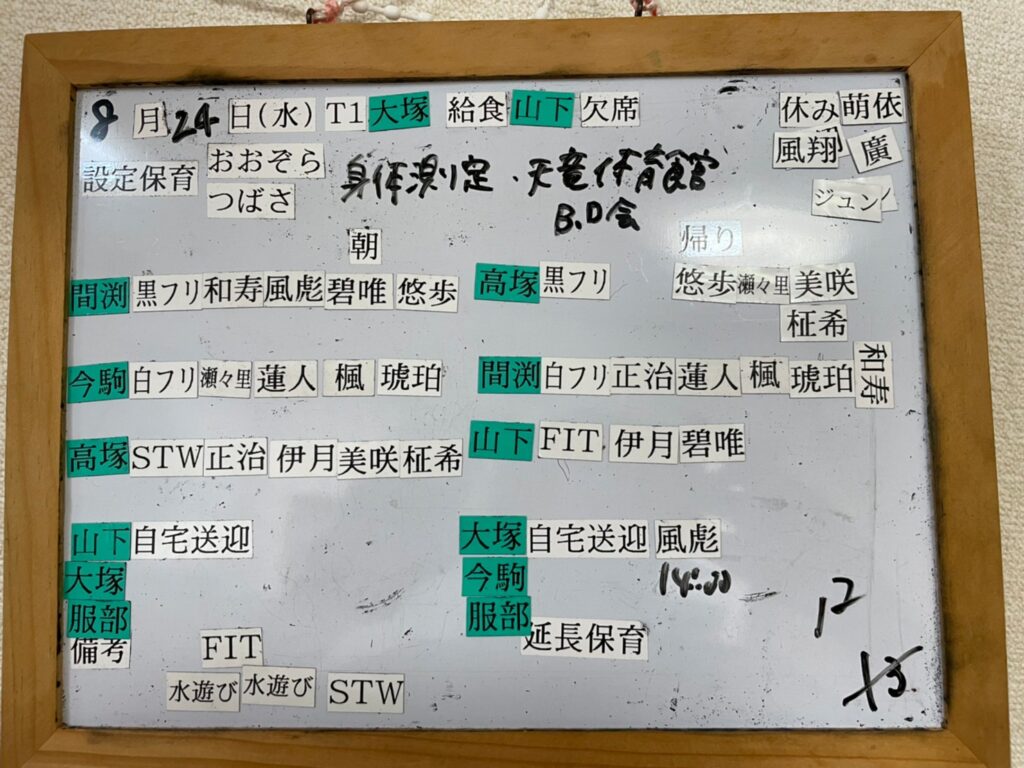 8月24日(水) T1 大塚 給食 山下 欠席 休み 萌依
風翔 廣
設定保育 おおぞら
つばさ
身体測定・天竜体育館
B.D会
ジュン
朝 帰り
間渕 黒フリ 和寿 風彪 碧唯 悠歩 高塚 黒フリ 悠歩 瀬々里 美咲
柾希
今駒 白フリ 瀬々里 蓮人 楓 琥珀 間渕 白フリ 正治 蓮人 楓 琥珀 和寿
高塚 STW 正治 伊月 美咲 柾希 山下 FIT 伊月 碧唯
山下 自宅送迎 大塚 自宅送迎 風彪
大塚 今駒 14:00
服部 服部
延長保育
12
備考 FIT
水遊び 水遊び STW
13